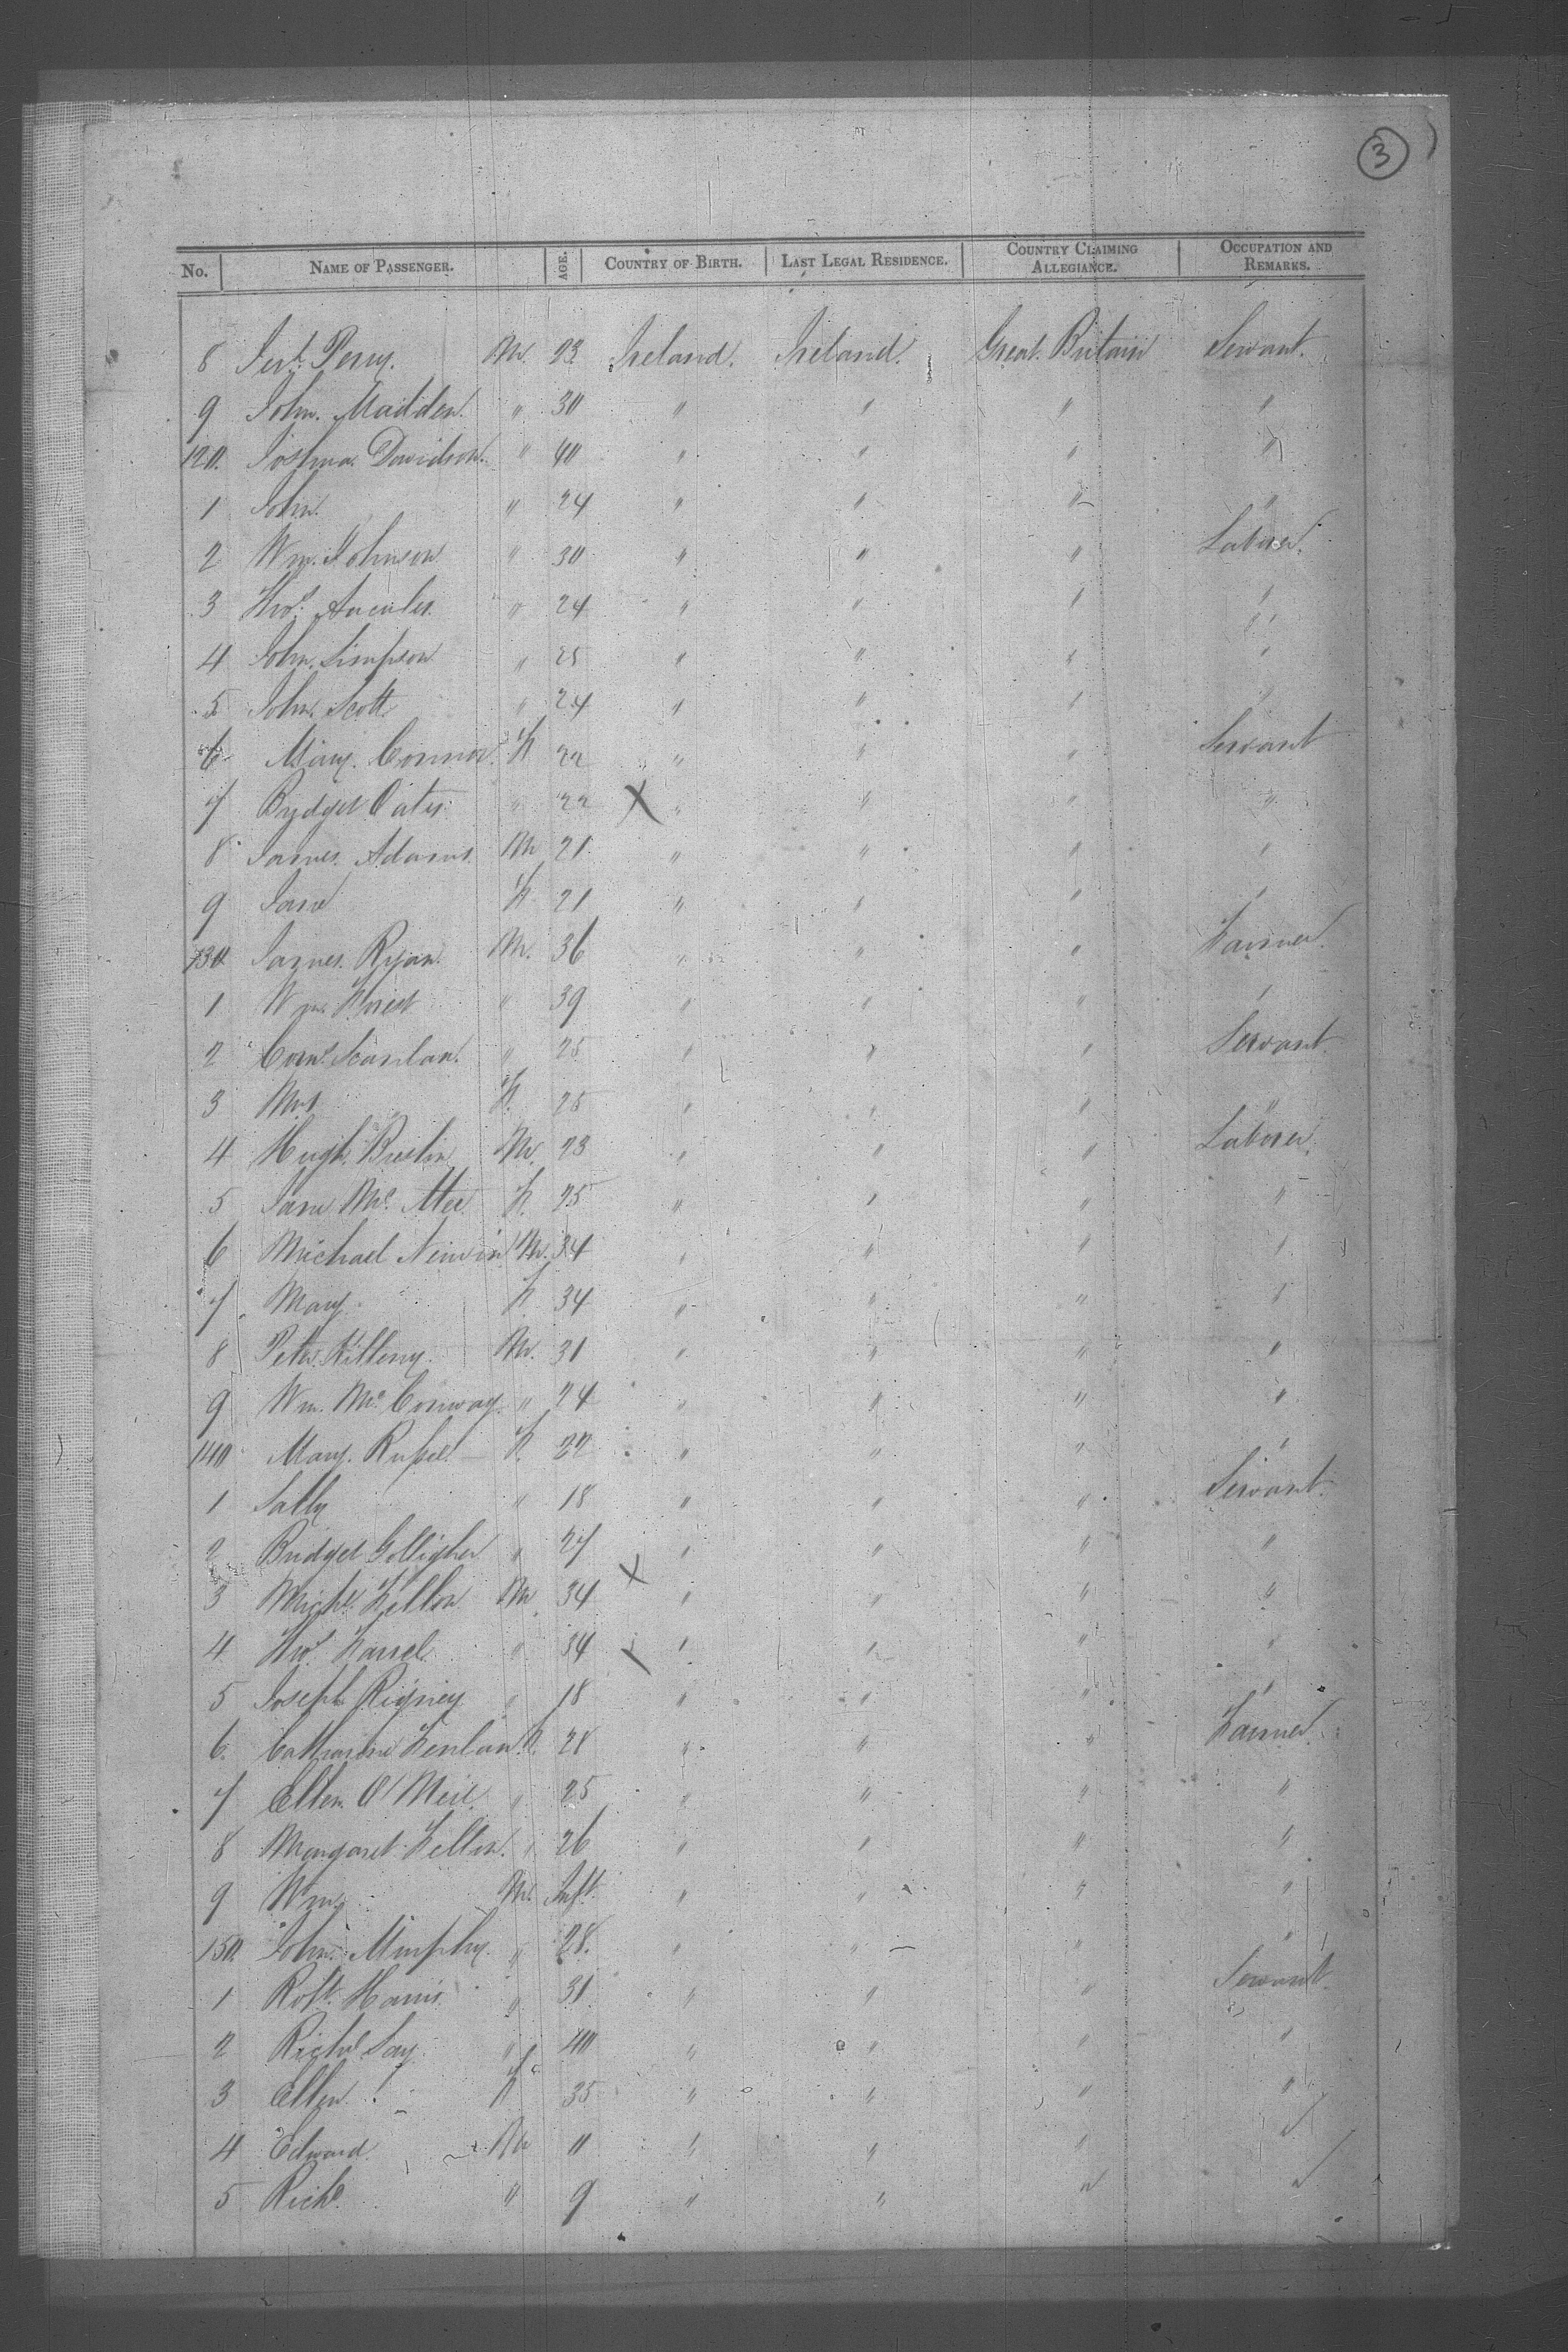 3
No. NAME OF PASSENGER. AGE. COUNTRY OF BIRTH. LAST LEGAL RESIDENCE. COUNTRY CLAIMING ALLEGIANCE. OCCUPATION AND REMARKS.
8 Perry. M. 23 Ireland. Ireland. Great Britain Servant.
9 John. Madden. " 30 " " " "
120. Joshua Davidson. " 40 " " " "
1 John. " 24 " " " "
2 Wm. Johnson " 30 " " " Laborer.
3 Thos. " 24 " " " "
4 John. Simpson " 25 " " " "
5 John. Scott " 24 " " " "
6 Mary. Connor. F 22 " " " Servant
7 Bydget Oates " 22 X " " " "
8 James. Adams. M 21 " " " "
9 Jane F 21 " " " "
130 James. Ryan. M. 36 " " " Farmer.
1 Wm. Forest " 39 " " " "
2 Corns. Scanlan. " 25 " " " Servant.
3 Mrs F. 25 " " " "
4 Hugh. Breslin M. 23 " " " Laborer.
5 Jane Mc. Atee F. 25 " " " "
6 Michael M. 34 " " " "
7 Mary F. 34 " " " "
8 Peter. Killeny. M. 31 " " " "
9 Wm. Mc. Conway. " 24 " " " "
140 Mary. Russel F. 22 " " " "
1 Sally " 18 " " " Servant.
2 Bridget Golligher " 27 " " " "
3 Michl. Fellon M 34 X " " " "
4 Thos. Farrel " 34 " " " "
5 Joseph Rigney " 18 " " " "
6. Catharine F. 28 " " " Farmer.
7 Ellen. O'Neil. " 25 " " " "
8 Margaret " 26 " " " "
9 Wm. M. Inft. " " " "
150. John. Murphy. " 28. " " " "
1 Robt. Harris " 31. " " " Servant.
2 Richd. Lay. " 40 " " " "
3 Ellen F 35 " " " "
4 Edward. M 11 " " " "
5 Richd. " 9 " " " "